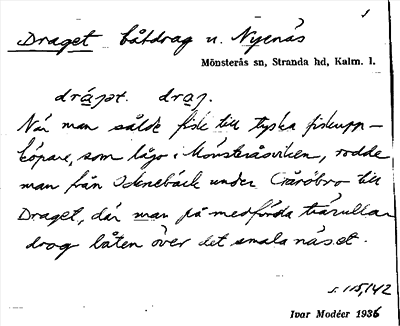 1
Draget båtdrag n. Nyenäs
Mönsterås sn, Stranda hd, Kalm. l.
drágət. drag.
När man sålde fisk till tyska fiskupp-
köpare, som lågo i Mönsteråsviken, rodde
man från Oknebäck under Gåröbro till
Draget, där man på medförda trärullar
drog båten över det smala näset.
s. 115,142
Ivar Modéer 1936